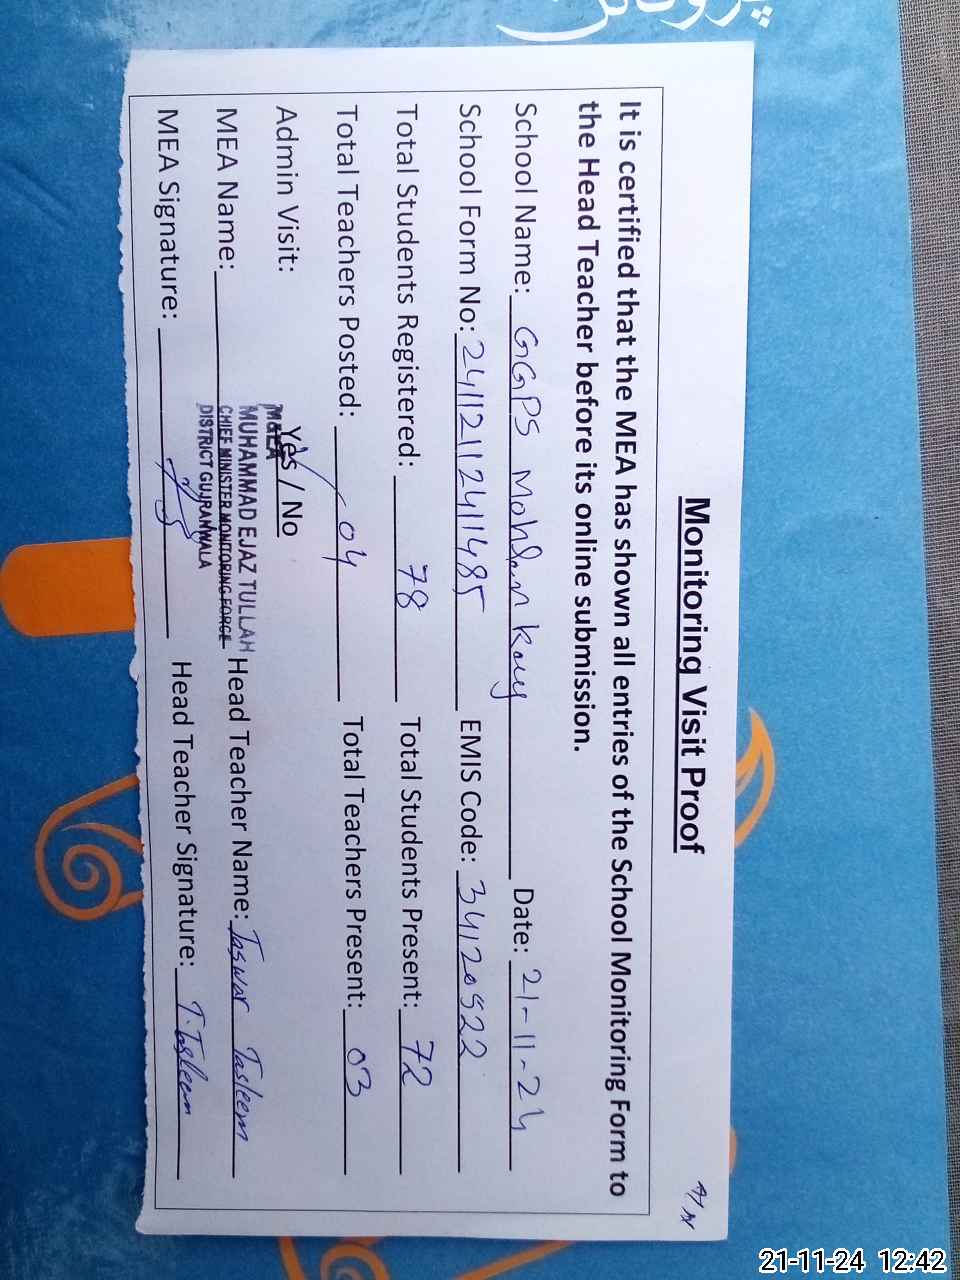 Monitoring Visit Proof
It is certified that the MEA has shown all entries of the School Monitoring Form to
the Head Teacher before its online submission.
School Name: GGPS Date: 21-11-24
School Form No: 24112112411485 EMIS Code: 34120522
Total Students Registered: 78 Total Students Present: 72
Total Teachers Posted: 04 Total Teachers Present: 03
Admin Visit: Yes / No
M&EA
MUHAMMAD EJAZ TULLAH
MEA Name: CHIEF MINISTER MONITORING FORCE Head Teacher Name: Taswar Tasleem
DISTRICT GUJRANWALA
MEA Signature: Head Teacher Signature: T.Tasleem
21-11-24 12:42